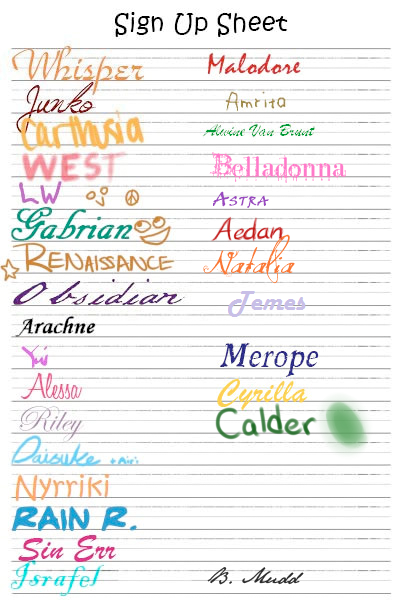 Sign Up Sheet
Whisper
Junko
Carthusia
WEST
LW
Gabrian
RENAISSANCE
Obsidian
Arachne
Yui
Alessa
Riley
Daisuke + Airi
Nyrriki
RAIN R.
Sin Err
Israfel
Malodore
Amrita
Alwine Van Brunt
Belladonna
ASTRA
Aedan
Natalia
Jemes
Merope
Cyrilla
Calder
B. Mudd